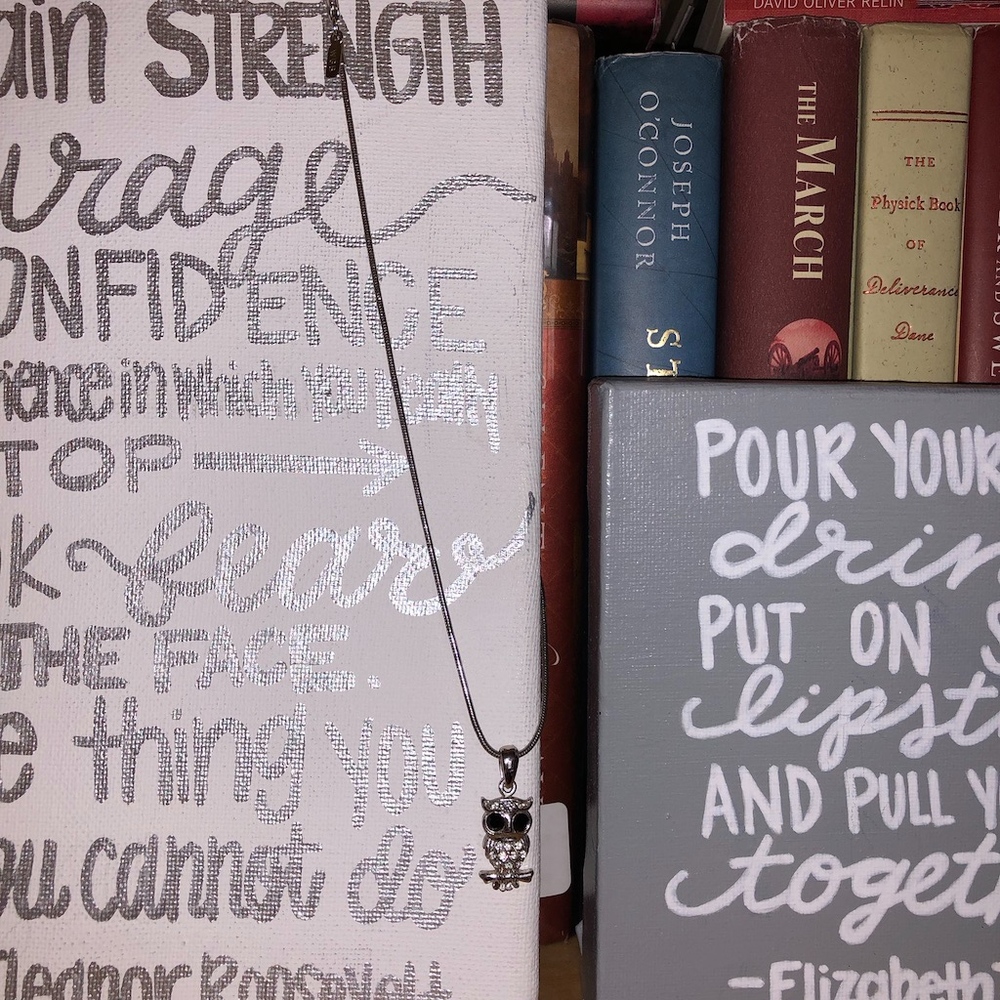 ain STRENGTH
urage
ONFIDENCE
rience in which you really
TOP
k fears
THE FACE.
e thing you
ou cannot do
Eleanor Roosevelt
DAVID OLIVER RELIN
JOSEPH
O'CONNOR
THE MARCH
THE
Physick Book
OF
Deliverance
Dane
POUR YOUR
drin
PUT ON S
lipst
AND PULL Y
togeth
-Elizabeth